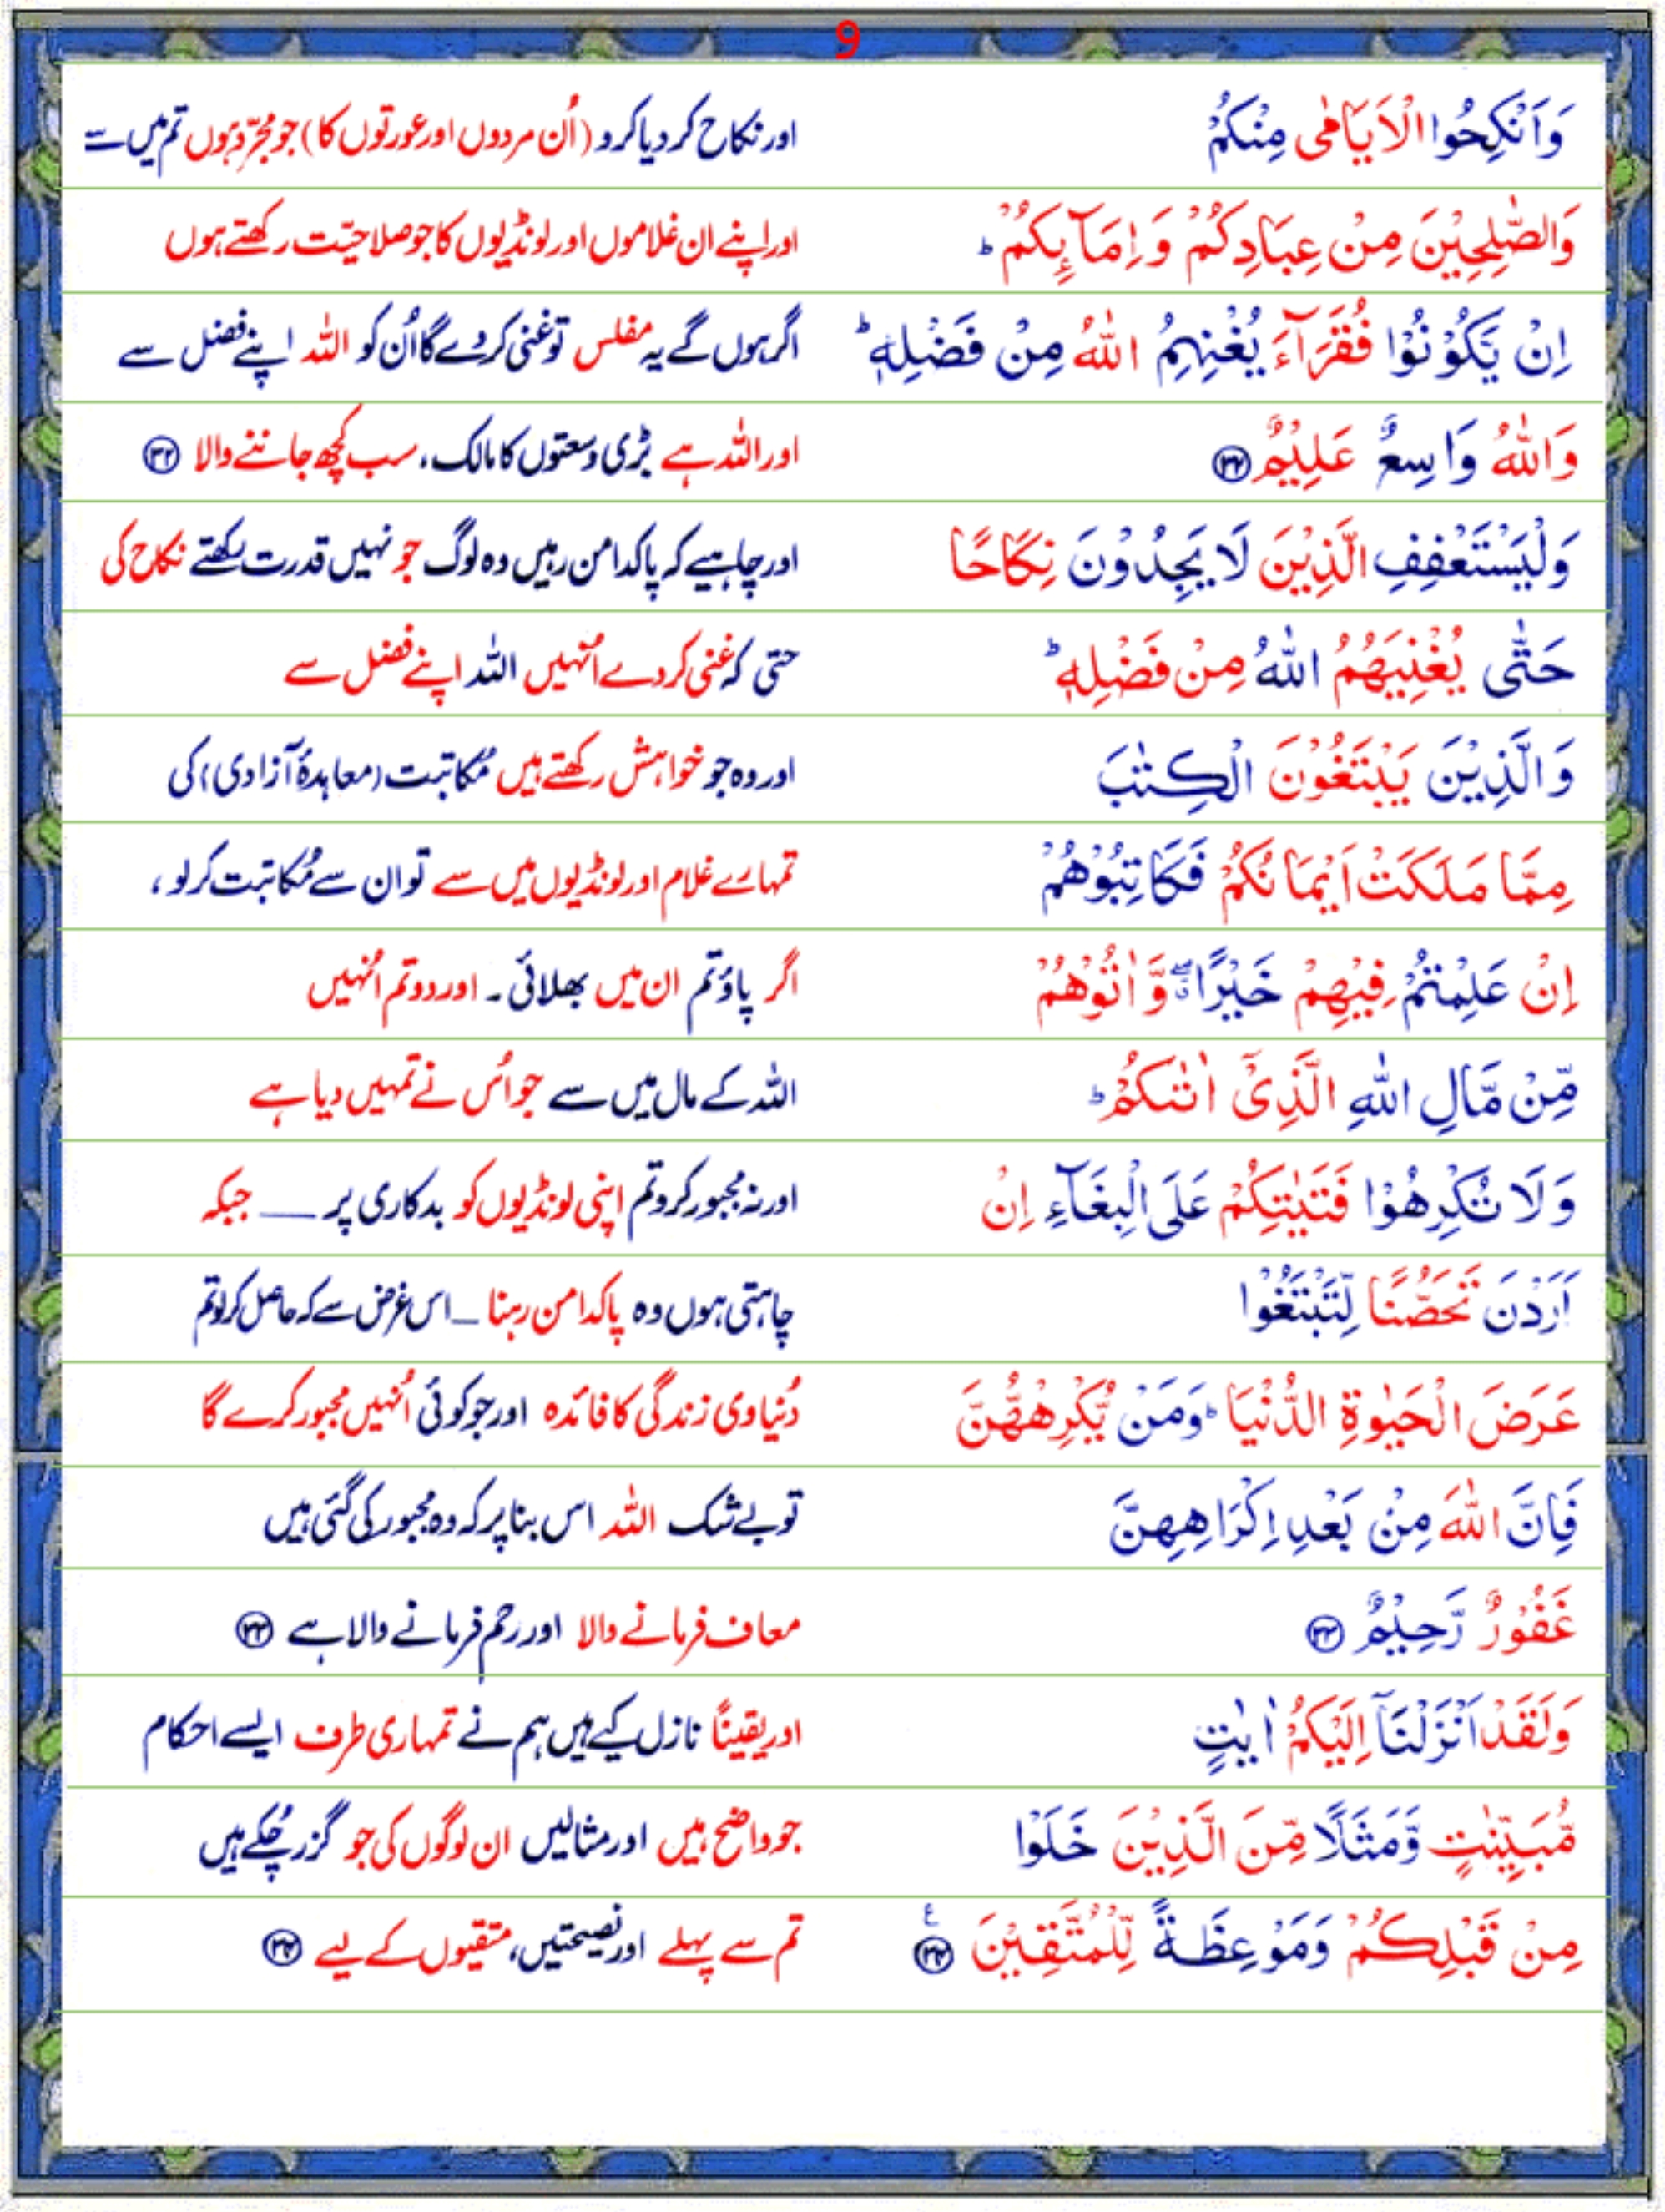 9
وَاَنْكِحُوا الْاَيَامٰى مِنْكُمْ اور نکاح کر دیا کرو (اُن مردوں اور عورتوں کا) جو مجرّد ہوں تم میں سے
وَالصّٰلِحِيْنَ مِنْ عِبَادِكُمْ وَاِمَآىِٕكُمْ ؕ اور اپنے ان غلاموں اور لونڈیوں کا جو صلاحیّت رکھتے ہوں
اِنْ يَّكُوْنُوْا فُقَرَآءَ يُغْنِهِمُ اللّٰهُ مِنْ فَضْلِهٖ ؕ اگر ہوں گے یہ مفلس تو غنی کر دے گا اُن کو اللہ اپنے فضل سے
وَاللّٰهُ وَاسِعٌ عَلِيْمٌ ۝۳۲ اور اللہ ہے بڑی وسعتوں کا مالک، سب کچھ جاننے والا ۝۳۲
وَلْيَسْتَعْفِفِ الَّذِيْنَ لَا يَجِدُوْنَ نِكَاحًا اور چاہیے کہ پاکدامن رہیں وہ لوگ جو نہیں قدرت رکھتے نکاح کی
حَتّٰى يُغْنِيَهُمُ اللّٰهُ مِنْ فَضْلِهٖ ؕ حتی کہ غنی کر دے اُنہیں اللہ اپنے فضل سے
وَالَّذِيْنَ يَبْتَغُوْنَ الْكِتٰبَ اور وہ جو خواہش رکھتے ہیں مُکاتبت (معاہدۂ آزادی) کی
مِمَّا مَلَكَتْ اَيْمَانُكُمْ فَكَاتِبُوْهُمْ تمہارے غلام اور لونڈیوں میں سے تو ان سے مُکاتبت کر لو ،
اِنْ عَلِمْتُمْ فِيْهِمْ خَيْرًا ۖۗ وَّاٰتُوْهُمْ اگر پاؤ تم ان میں بھلائی ۔ اور دو تم اُنہیں
مِّنْ مَّالِ اللّٰهِ الَّذِيْٓ اٰتٰىكُمْ ؕ اللہ کے مال میں سے جو اُس نے تمہیں دیا ہے
وَلَا تُكْرِهُوْا فَتَيٰتِكُمْ عَلَى الْبِغَآءِ اِنْ اور نہ مجبور کرو تم اپنی لونڈیوں کو بدکاری پر — جبکہ
اَرَدْنَ تَحَصُّنًا لِّتَبْتَغُوْا چاہتی ہوں وہ پاکدامن رہنا — اس غرض سے کہ حاصل کر لو تم
عَرَضَ الْحَيٰوةِ الدُّنْيَا ؕ وَمَنْ يُّكْرِهْهُّنَّ دُنیاوی زندگی کا فائدہ اور جو کوئی اُنہیں مجبور کرے گا
فَاِنَّ اللّٰهَ مِنْ بَعْدِ اِكْرَاهِهِنَّ تو بے شک اللہ اس بنا پر کہ وہ مجبور کی گئی ہیں
غَفُوْرٌ رَّحِيْمٌ ۝۳۳ معاف فرمانے والا اور رحم فرمانے والا ہے ۝۳۳
وَلَقَدْ اَنْزَلْنَآ اِلَيْكُمْ اٰيٰتٍ اور یقیناً نازل کیے ہیں ہم نے تمہاری طرف ایسے احکام
مُّبَيِّنٰتٍ وَّمَثَلًا مِّنَ الَّذِيْنَ خَلَوْا جو واضح ہیں اور مثالیں ان لوگوں کی جو گزر چُکے ہیں
مِنْ قَبْلِكُمْ وَمَوْعِظَةً لِّلْمُتَّقِيْنَ ۝۳۴ ع تم سے پہلے اور نصیحتیں، متقیوں کے لیے ۝۳۴